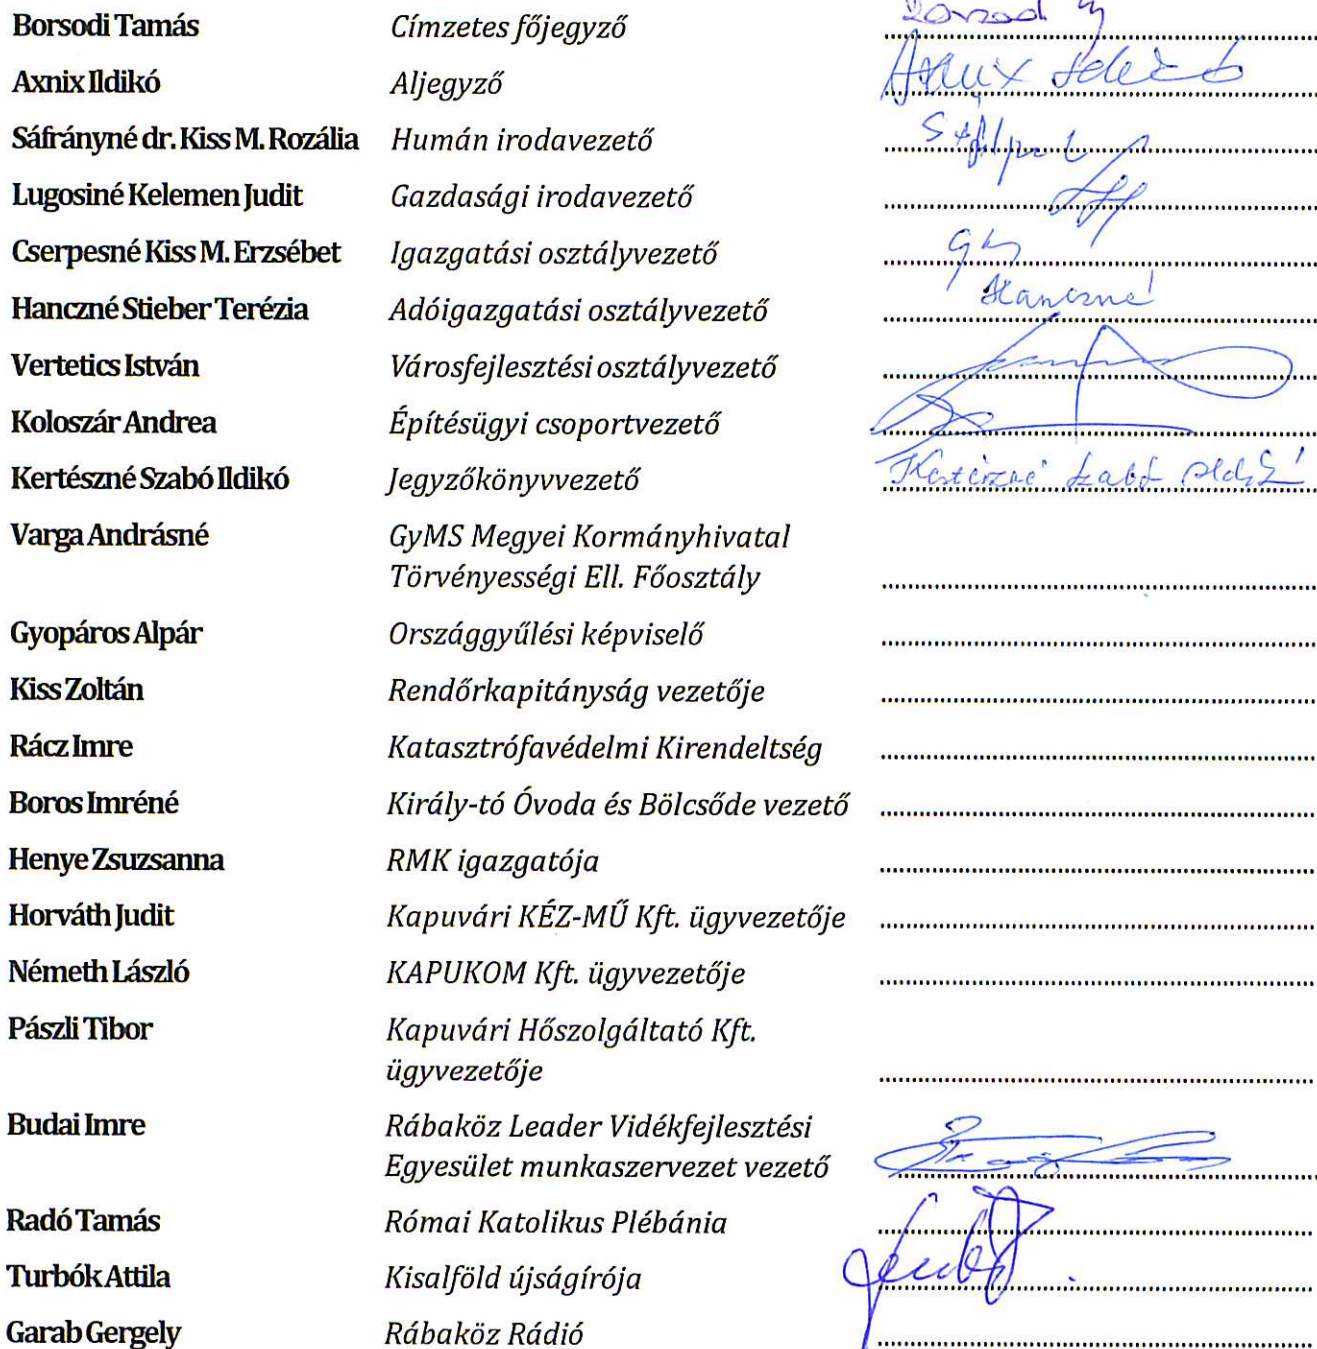 Borsodi Tamás Címzetes főjegyző
Axnix Ildikó Aljegyző Axnix Ildikó
Sáfrányné dr. Kiss M. Rozália Humán irodavezető
Lugosiné Kelemen Judit Gazdasági irodavezető
Cserpesné Kiss M. Erzsébet Igazgatási osztályvezető
Hanczné Stieber Terézia Adóigazgatási osztályvezető Hanczné
Vertetics István Városfejlesztési osztályvezető
Koloszár Andrea Építésügyi csoportvezető
Kertészné Szabó Ildikó Jegyzőkönyvvezető Kertészné Szabó Ildikó
Varga Andrásné GyMS Megyei Kormányhivatal
Törvényességi Ell. Főosztály
Gyopáros Alpár Országgyűlési képviselő
Kiss Zoltán Rendőrkapitányság vezetője
Rácz Imre Katasztrófavédelmi Kirendeltség
Boros Imréné Király-tó Óvoda és Bölcsőde vezető
Henye Zsuzsanna RMK igazgatója
Horváth Judit Kapuvári KÉZ-MŰ Kft. ügyvezetője
Németh László KAPUKOM Kft. ügyvezetője
Pászli Tibor Kapuvári Hőszolgáltató Kft.
ügyvezetője
Budai Imre Rábaköz Leader Vidékfejlesztési
Egyesület munkaszervezet vezető
Radó Tamás Római Katolikus Plébánia
Turbók Attila Kisalföld újságírója
Garab Gergely Rábaköz Rádió